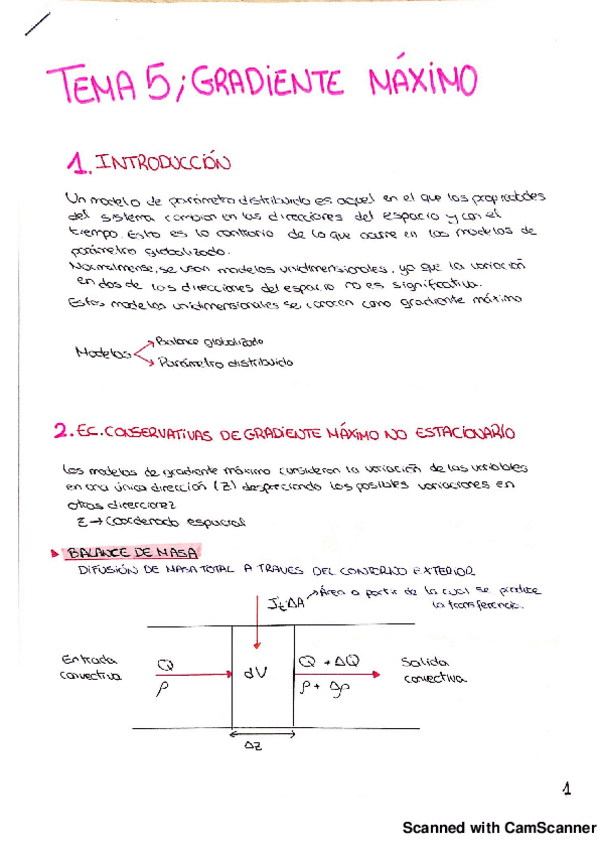 TEMA 5; GRADIENTE MÁXIMO
1. INTRODUCCIÓN
Un modelo de parámetro distribuido es aquel en el que las propiedades
del sistema cambian en las direcciones del espacio y con el
tiempo. Esto es lo contrario de lo que ocurre en los modelos de
parámetro globalizado.
Normalmense, se usan modelos unidimensionales, ya que la variación
en dos de las direcciones del espacio no es significativa.
Estos modelos unidimensionales se conocen como gradiente máximo
Modelos
Balance globalizado
Parámetro distribuido
2. EC. CONSERVATIVAS DE GRADIENTE MÁXIMO NO ESTACIONARIO
Los modelos de gradiente máximo consideran la variación de las variables
en una única dirección (Z) despreciando las posibles variaciones en
otras direcciones
Z → Coordenada espacial
BALANCE DE MASA
DIFUSIÓN DE MASA TOTAL A TRAVES DEL CONTORNO EXTERIOR
JtΔA
Área a partir de la cual se produce
la transferencia.
Entrada
convectiva
Q
ρ
dV
Q + ΔQ
ρ + Δρ
Salida
convectiva
ΔZ
1
Scanned with CamScanner